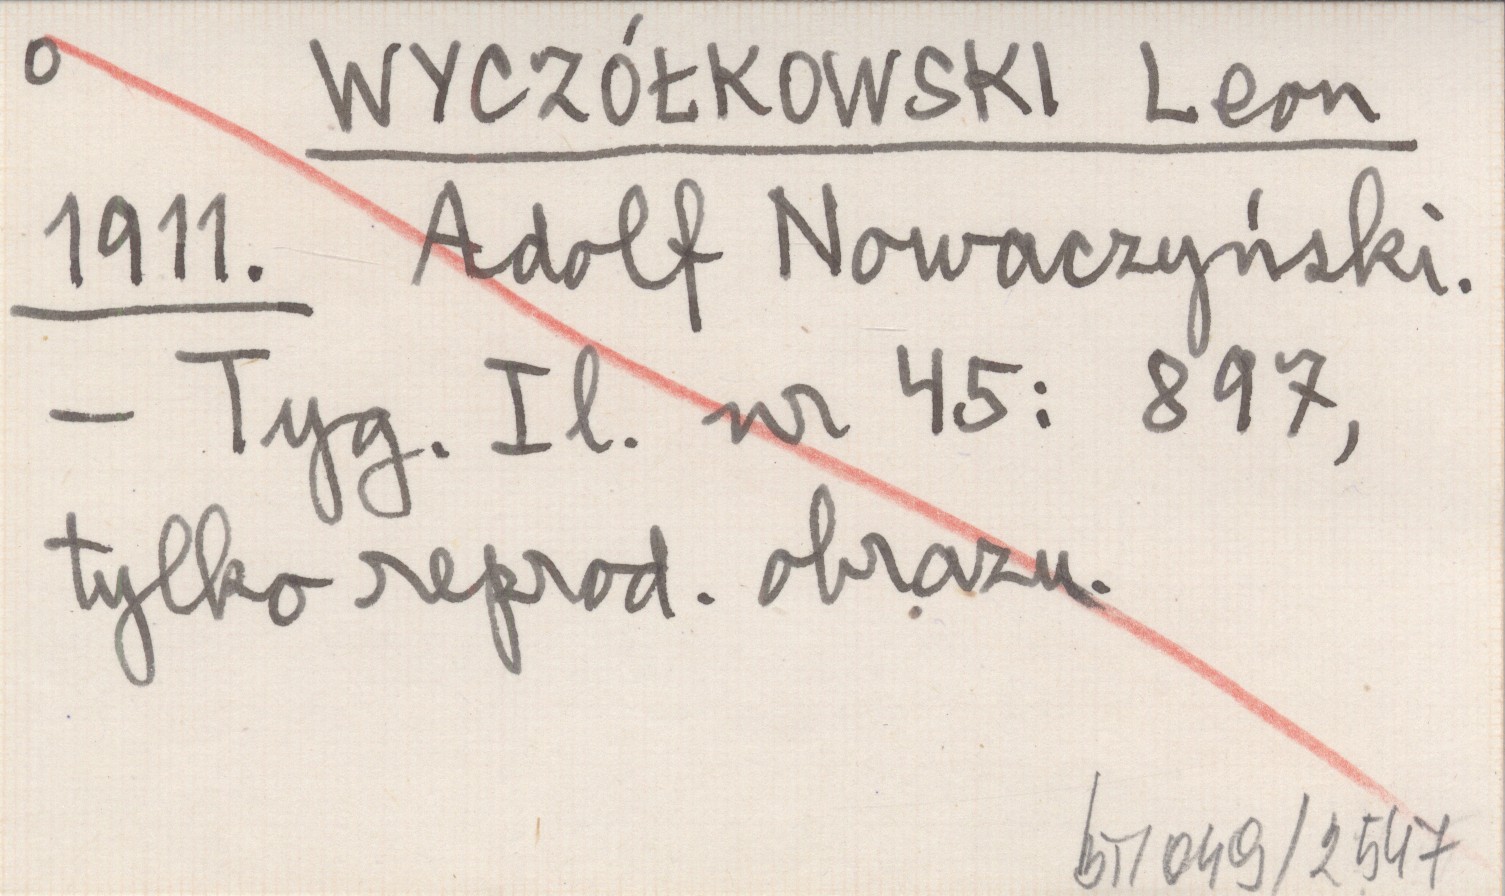 o WYCZÓŁKOWSKI Leon
1911. Adolf Nowaczyński.
– Tyg. Il. nr 45: 897,
tylko reprod. obrazu.
049/2547